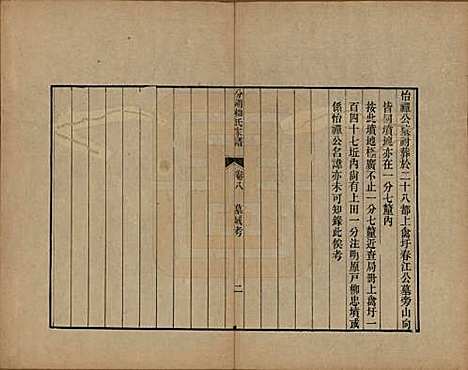 怡禪公墓祔葬於二十八都上禽圩春江公墓旁山向
皆同墳地亦在一分七釐內
按此墳地極廣不止一分七釐近查局冊上禽圩一
百四十七坵內尚有上田一分注明原戶柳忠墳或
係怡禪公名諱亦未可知錄此俟考
分湖柳氏家譜
卷八
墓域考
二